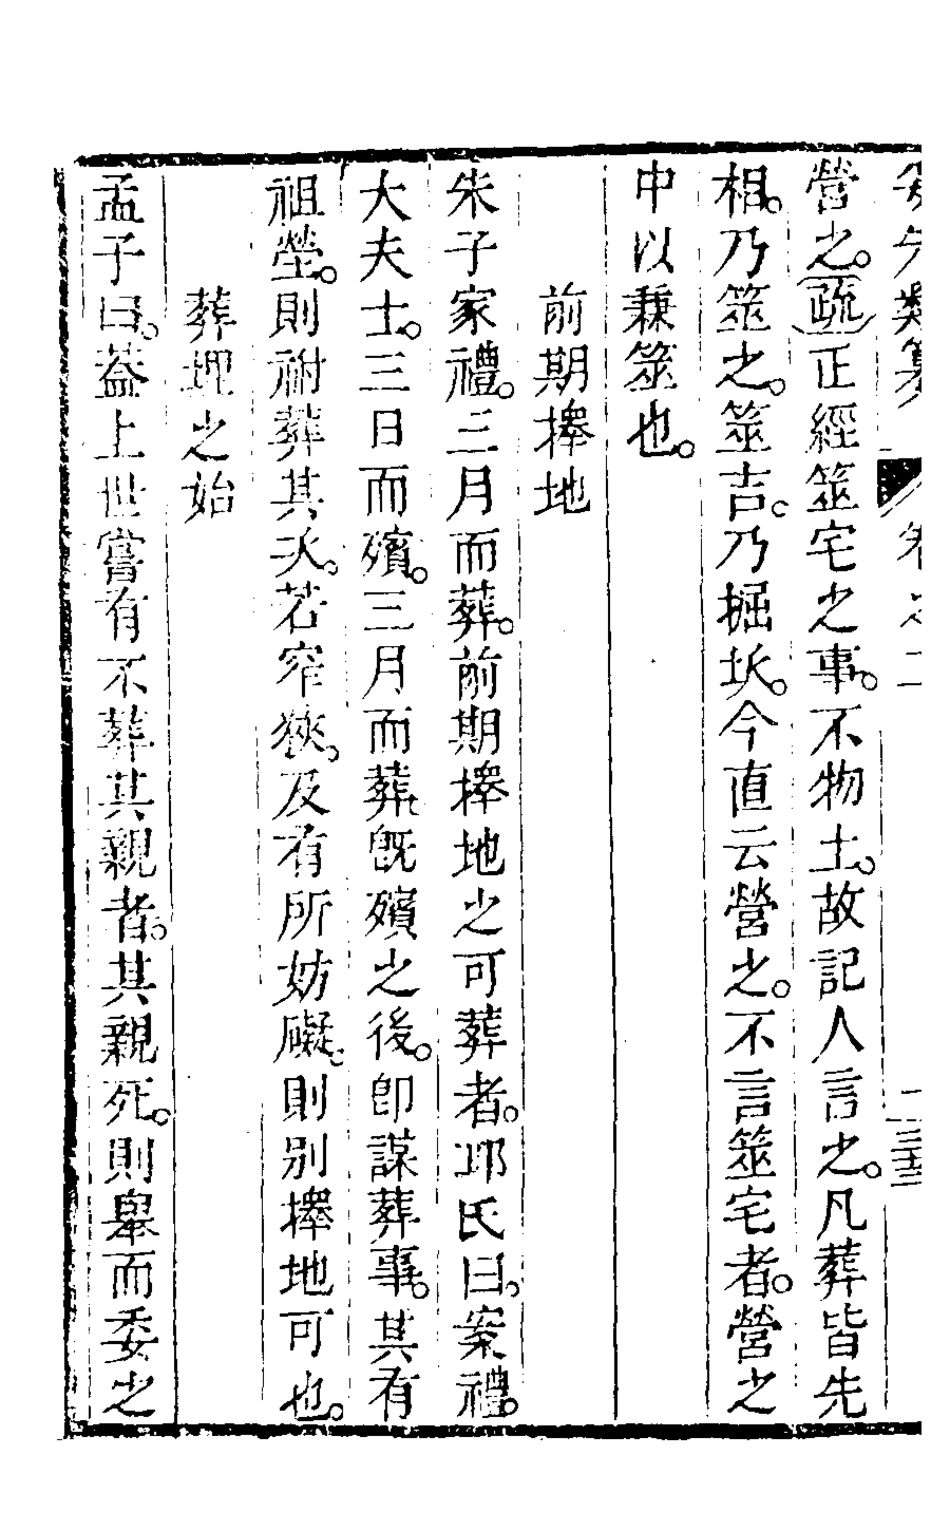 類纂
卷之二
三十三
營之。疏正經筮宅之事。不物土。故記人言之。凡葬皆先
相。乃筮之。筮吉。乃掘坎。今直云營之。不言筮宅者。營之
中以兼筮也。
前期擇地
朱子家禮。三月而葬。前期擇地之可葬者。邱氏曰。案禮。
大夫士。三日而殯。三月而葬。旣殯之後。卽謀葬事。其有
祖塋。則祔葬其次。若窄狹。及有所妨礙。則別擇地可也。
葬埋之始
孟子曰。葢上世嘗有不葬其親者。其親死。則舉而委之